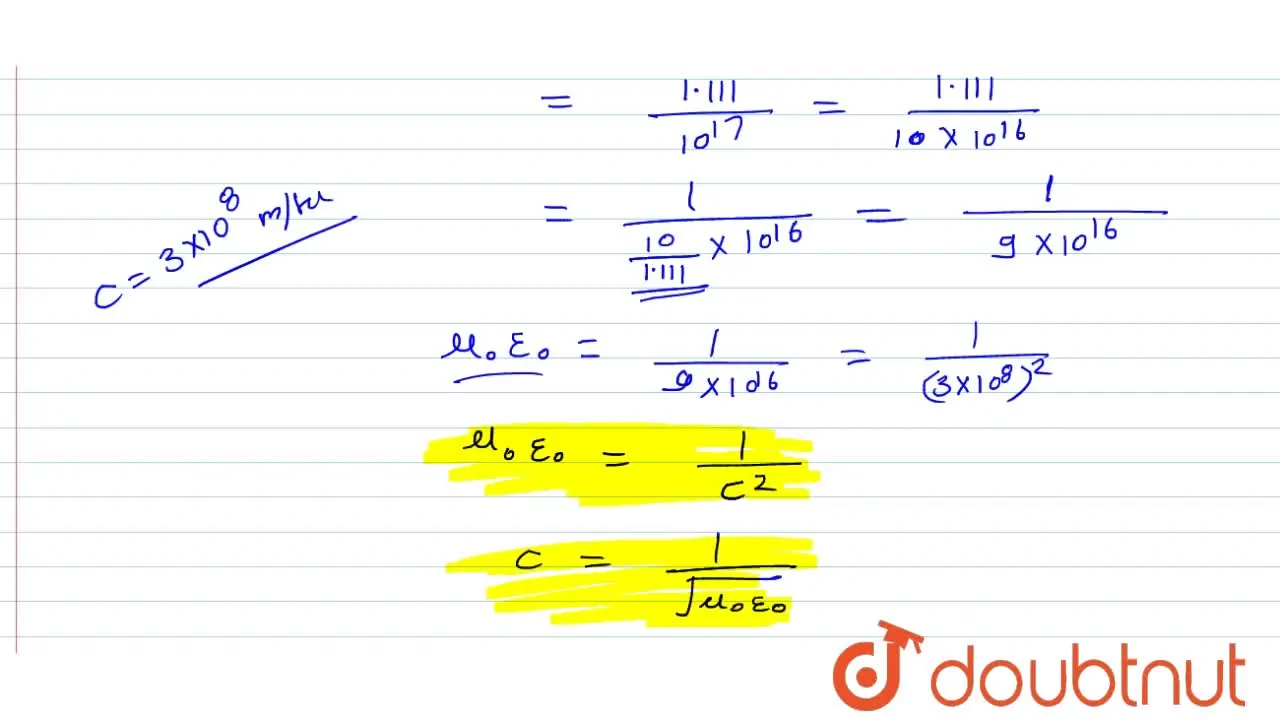 = 1.111 / 10^17 = 1.111 / 10 × 10^16
= 1 / (10/1.111 × 10^16) = 1 / 9 × 10^16
c = 3×10^8 m/sec
μ₀ ε₀ = 1 / 9 × 10^16 = 1 / (3×10^8)^2
μ₀ ε₀ = 1 / c^2
c = 1 / √μ₀ε₀
doubtnut